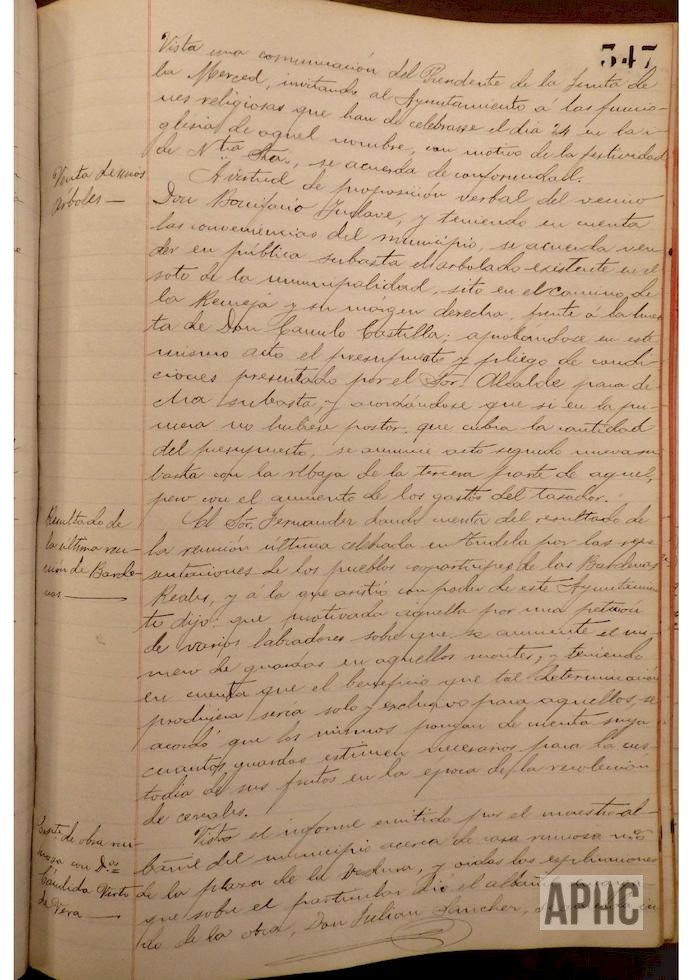 547
Vista una comunicación del Presidente de la Junta de
la Merced, invitando al Ayuntamiento á las funcio-
nes religiosas que han de celebrarse el dia 24 en la i-
glesia de aquel nombre, con motivo de la festividad
de Ntra Sra., se acuerda de conformidad.
Venta de unos
árboles —
A virtud de proposición verbal del vecino
Don Bonifacio Juslave, y teniendo en cuenta
las conveniencias del municipio, se acuerda ven-
der en pública subasta el arbolado existente en el
soto de la municipalidad, sito en el camino de
la Remeja y su márgen derecha, frente á la huer
ta de Don Camilo Castilla; aprobándose en este
mismo acto el presupuesto y pliego de condi-
ciones presentado por el Sor. Alcalde para di-
cha subasta, y acordándose que si en la pri-
mera no hubiese postor, que cubra la cantidad
del presupuesto, se anuncie acto seguido nueva su
basta con la rebaja de la tercera parte de aquel,
pero con el aumento de los gastos del tasador.
Resultado de
la última reu-
nión de Barde-
nas —
El Sor. Fernandez dando cuenta del resultado de
la reunión última celebrada en Tudela por las repre
sentaciones de los pueblos copartícipes de las Bardenas
Reales, y á la que asistió con poder de este Ayuntamien
to dijo: que motivada aquella por una petición
de varios labradores sobre que se aumente el nú-
mero de guardas en aquellos montes, y teniendo
en cuenta que el beneficio que tal determinación
produjera sería solo y exclusivo para aquellos, se
acordó que los mismos pongan de cuenta suya
cuantos guardas estimen necesarios para la cus-
todia de sus frutos en la época de la recolección
de cereales.
de obra rui-
nosa con D.as
Cándida Virto
de Vera —
Visto el informe emitido por el maestro al-
bañil del municipio acerca de casa ruinosa nº
de la plaza de la Verdura, y oidas las esplicaciones
que sobre el particular dió el albañil
de la obra, Don Julian Sanchez,
APHC